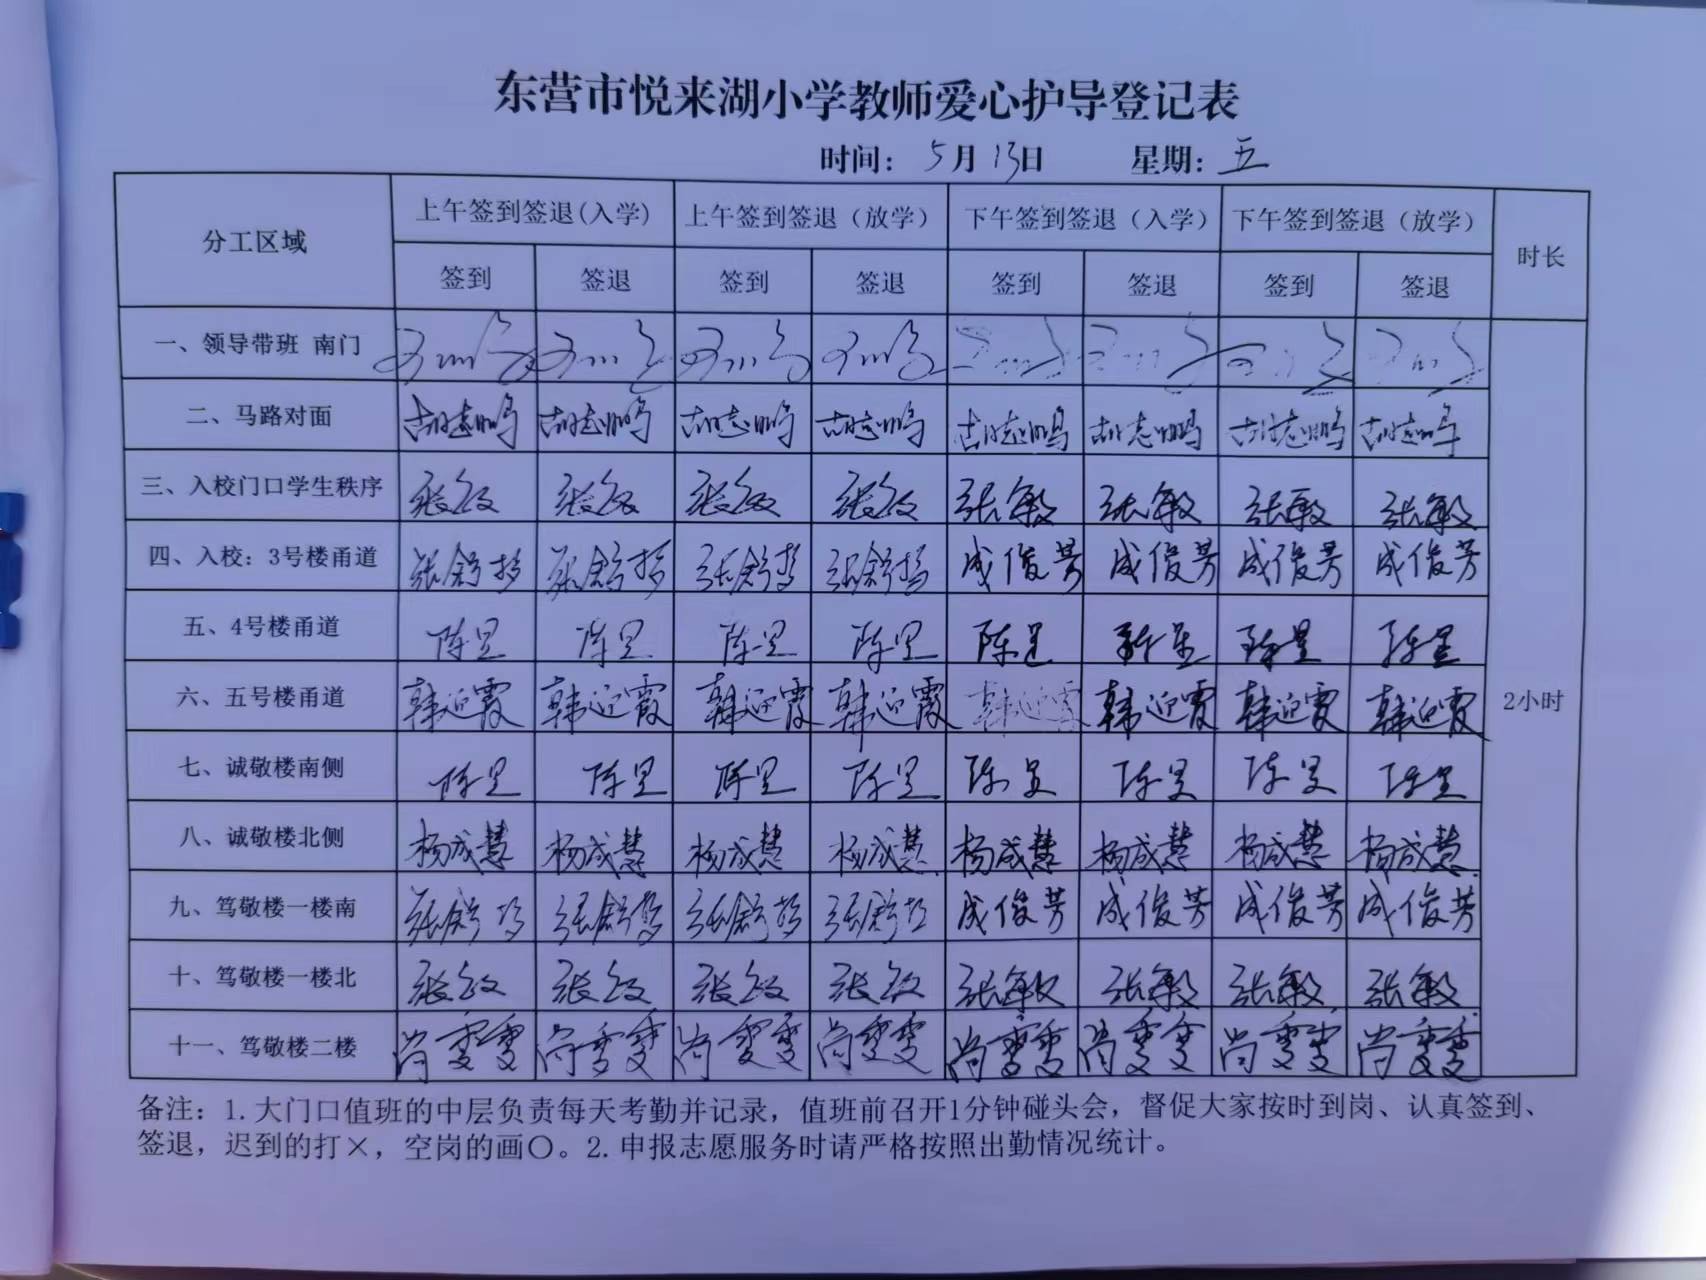 东营市悦来湖小学教师爱心护导登记表
时间： 5月13日 星期：五
分工区域 上午签到签退(入学) 上午签到签退（放学） 下午签到签退（入学） 下午签到签退（放学） 时长
签到 签退 签到 签退 签到 签退 签到 签退
一、领导带班 南门
二、马路对面 胡志鹏 胡志鹏 胡志鹏 胡志鹏 胡志鹏 胡志鹏 胡志鹏 胡志鹏
三、入校门口学生秩序 张敏 张敏 张敏 张敏 张敏 张敏 张敏 张敏
四、入校：3号楼甬道 张舒扬 张舒扬 张舒扬 张舒扬 成俊芳 成俊芳 成俊芳 成俊芳
五、4号楼甬道 陈昱 陈昱 陈昱 陈昱 陈昱 陈昱 陈昱 陈昱
六、五号楼甬道 韩迎霞 韩迎霞 韩迎霞 韩迎霞 韩迎霞 韩迎霞 韩迎霞 韩迎霞
2小时
七、诚敬楼南侧 陈昱 陈昱 陈昱 陈昱 陈昱 陈昱 陈昱 陈昱
八、诚敬楼北侧 杨成慧 杨成慧 杨成慧 杨成慧 杨成慧 杨成慧 杨成慧 杨成慧
九、笃敬楼一楼南 张舒扬 张舒扬 张舒扬 张舒扬 成俊芳 成俊芳 成俊芳 成俊芳
十、笃敬楼一楼北 张敏 张敏 张敏 张敏 张敏 张敏 张敏 张敏
十一、笃敬楼二楼 尚雯雯 尚雯雯 尚雯雯 尚雯雯 尚雯雯 尚雯雯 尚雯雯 尚雯雯
备注：1.大门口值班的中层负责每天考勤并记录，值班前召开1分钟碰头会，督促大家按时到岗、认真签到、
签退，迟到的打×，空岗的画〇。2.申报志愿服务时请严格按照出勤情况统计。